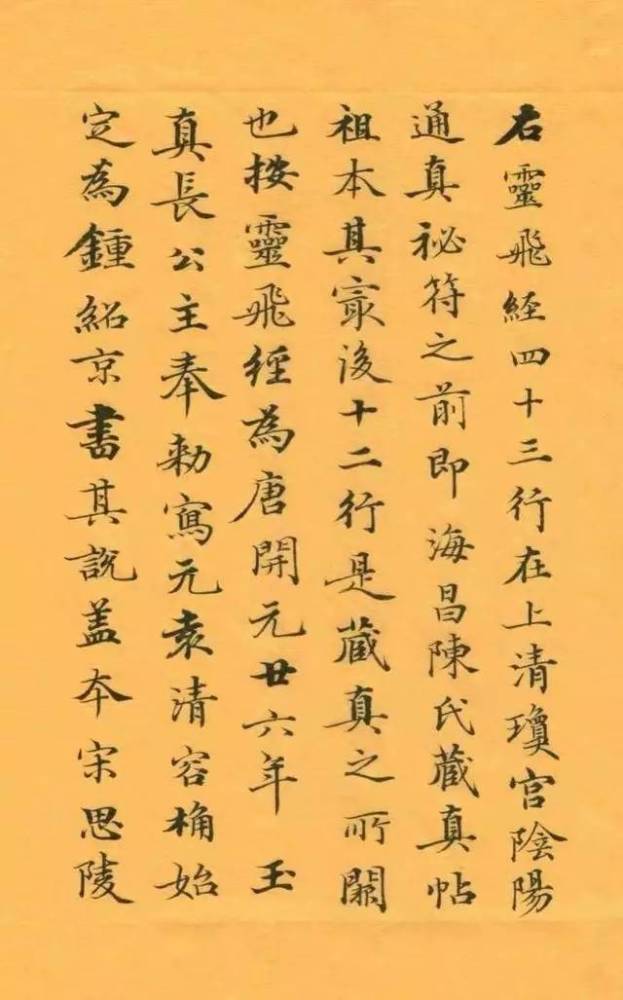 右靈飛經四十三行在上清瓊宮陰陽
通真祕符之前即海昌陳氏藏真帖
祖本其㝡後十二行是藏真之所闕
也按靈飛經為唐開元廿六年玉
真長公主奉勑寫元袁清容桷始
定為鍾紹京書其說盖本宋思陵